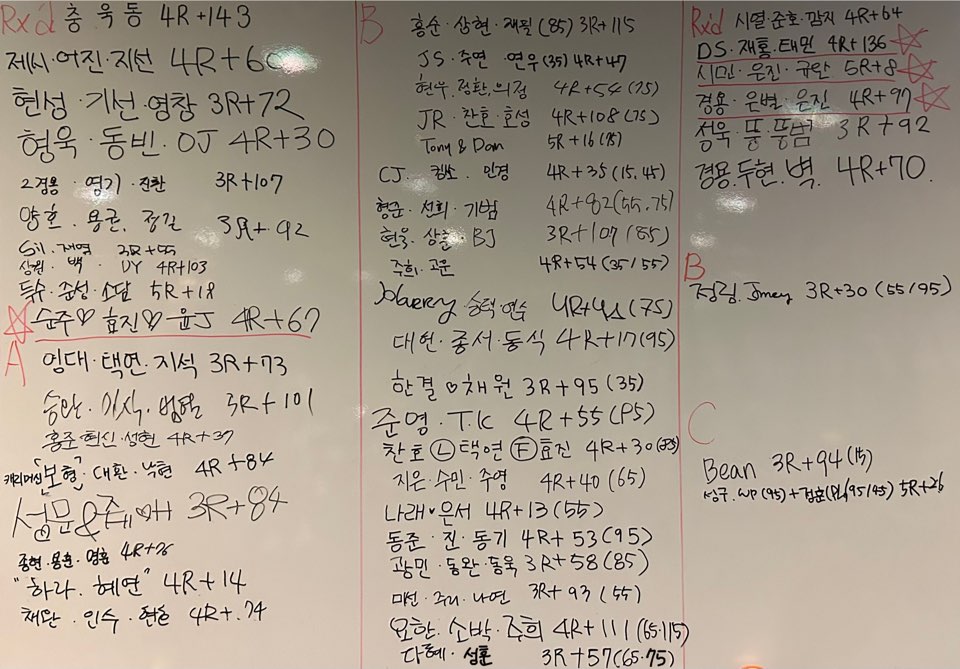 Rx'd 충 욱 동 4R+143
제시·어진·지선 4R+60
현성·기선·영창 3R+72
형욱·동빈·OJ 4R+30
2경용·영기·진환 3R+107
양호. 용근. 정길 3R+92
3R+
상원·백· UY 4R+103
득수·준성·소담 5R+18
☆ 순주♡효진♡윤J 4R+67
A
임대·택연·지석 3R+73
승완. 3R+101
홍준·혁신·성현 4R+37
캐리머신 "보형"·대환·낙현 4R+84
성문& 3R+84
종현·용훈·영훈
"하라. 혜연" 4R+14
인수· 4R+74
B
홍순·상현·재필 (85) 3R+115
JS·주연 연우 (35) 4R+47
현우. 정환, 의정 4R+54 (75)
JR·찬호·효성 4R+108 (75)
Tony & Dan 5R+16
CJ. 민경 4R+35 (15.45)
형준·선희·기범 4R+82 (55.75)
현욱·상훈·BJ 3R+107 (85)
주희·고운 4R+54 (35/55)
승택·연수 (75)
대헌·종서·동식 4R+17 (95)
한결♡채원 3R+95 (35)
준영·T.K 4R+55 (P5)
찬호Ⓛ택연Ⓕ효진 4R+30
지은·수민·주영 4R+40 (65)
나래♥은서 4R+13 (55)
동준·진·동기 4R+53 (95)
광민·동완·동욱 3R+58 (85)
미선·주리·나연 3R+93 (55)
요한·소박·주희 4R+111 (65·115)
다혜·성훈 3R+57 (65·75)
Rx'd 시열·준호·깜지 4R+64
DS·재홍·태민 4R+136 ☆
시민·은진·규완 5R+8 ☆
경용·은별·은진 4R+97 ☆
성욱·뚱·뚱범 3R+92
경용. 두현. 벽. 4R+70.
B
정림. Jmey 3R+30 (55/95)
C
Bean 3R+94
성구. WP (95) + 5R+26